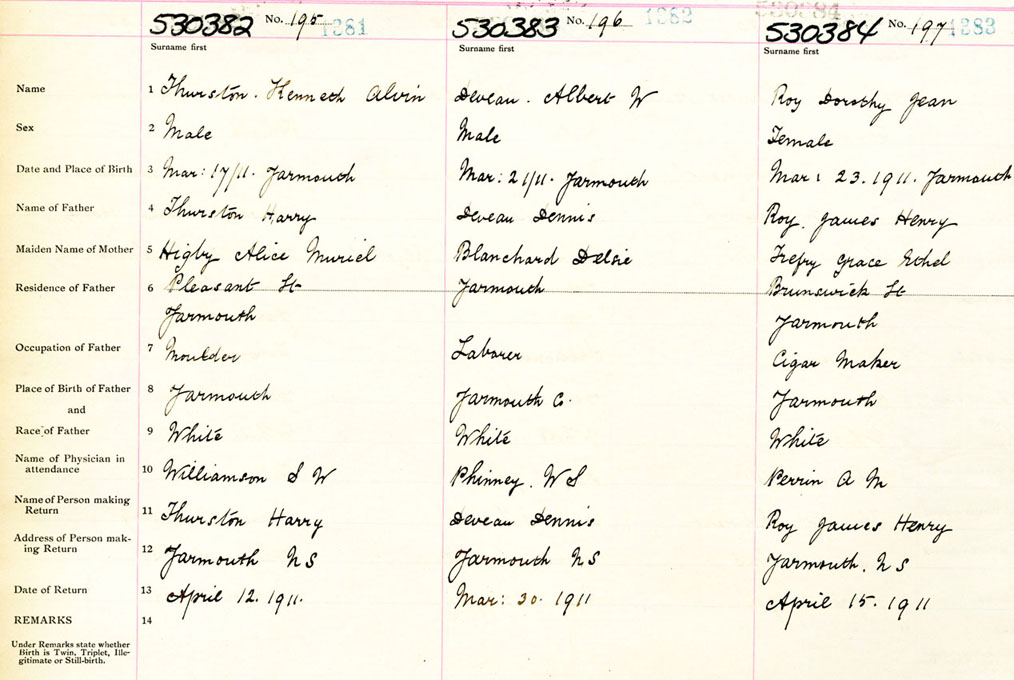 530382 No. 195 1381
530383 No. 196 1382
530384 No. 197 1383
Surname first Surname first Surname first
Name 1 Thurston. Kenneth Alvin Deveau. Albert W Roy Dorothy Jean
Sex 2 Male Male Female
Date and Place of Birth 3 Mar: 17/11. Yarmouth Mar: 21/11. Yarmouth Mar: 23. 1911. Yarmouth
Name of Father 4 Thurston Harry Deveau Dennis Roy. James Henry
Maiden Name of Mother 5 Higby Alice Muriel Blanchard Delsie Trefry Grace Ethel
Residence of Father 6 Pleasant St Yarmouth Brunswick St
Yarmouth Yarmouth
Occupation of Father 7 Moulder Laborer Cigar Maker
Place of Birth of Father 8 Yarmouth Yarmouth Co. Yarmouth
and
Race of Father 9 White White White
Name of Physician in
attendance 10 Williamson S W Phinney. W S Perrin A M
Name of Person making
Return 11 Thurston Harry Deveau Dennis Roy James Henry
Address of Person mak-
ing Return 12 Yarmouth NS Yarmouth NS Yarmouth. NS
Date of Return 13 April 12. 1911. Mar: 30. 1911 April 15. 1911
REMARKS 14
Under Remarks state whether
Birth is Twin, Triplet, Ille-
gitimate or Still-birth.